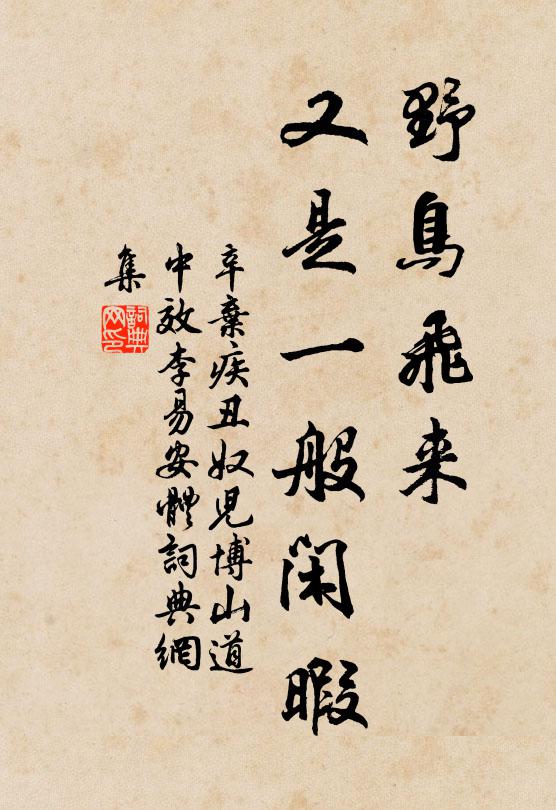 野鳥飛来
又是一般閑暇
辛棄疾丑奴児博山道
中效李易安體詞典網
集
詞典网印